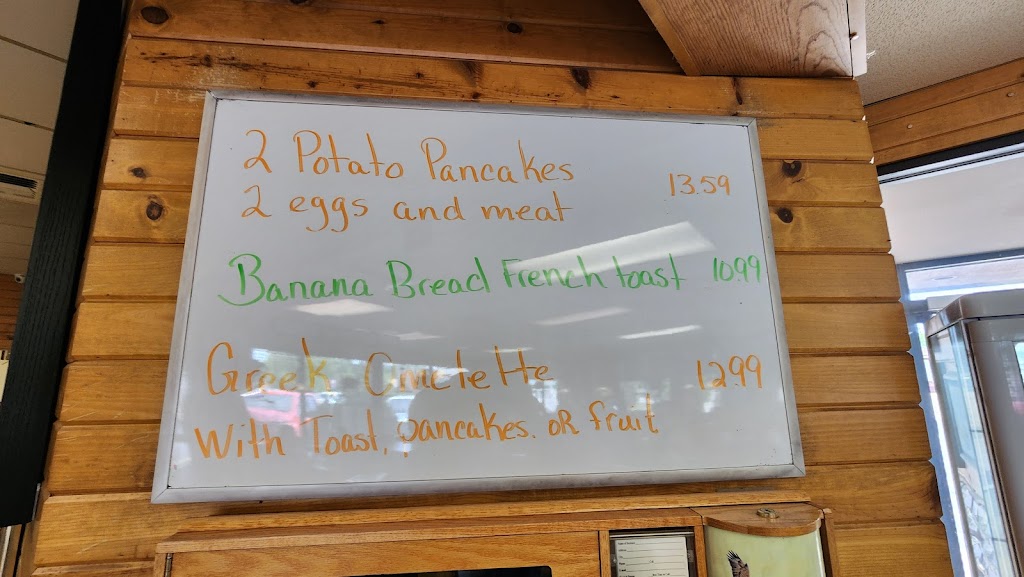 2 Potato Pancakes
2 eggs and meat 13.59
Banana Bread French toast 10.99
Greek Omelette 12.99
With Toast, pancakes. OR fruit